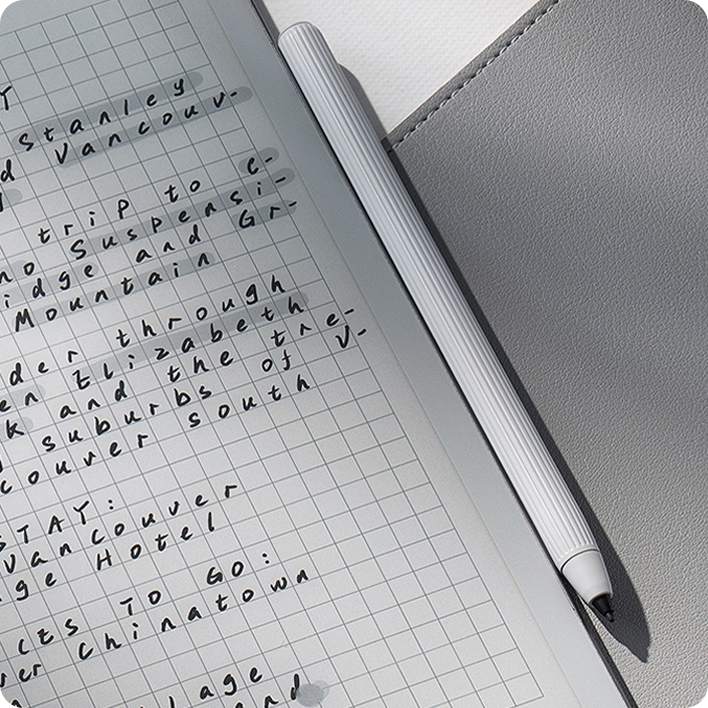 Y
d Stanley
Vancouv-
trip to C-
no Suspensi-
idge and Gr-
Mountain
der through
en Elizabeth
k and the tre-
suburbs of V-
couver south
STAY:
Vancouver
ge Hotel
CES TO GO:
er Chinatown
lage
and